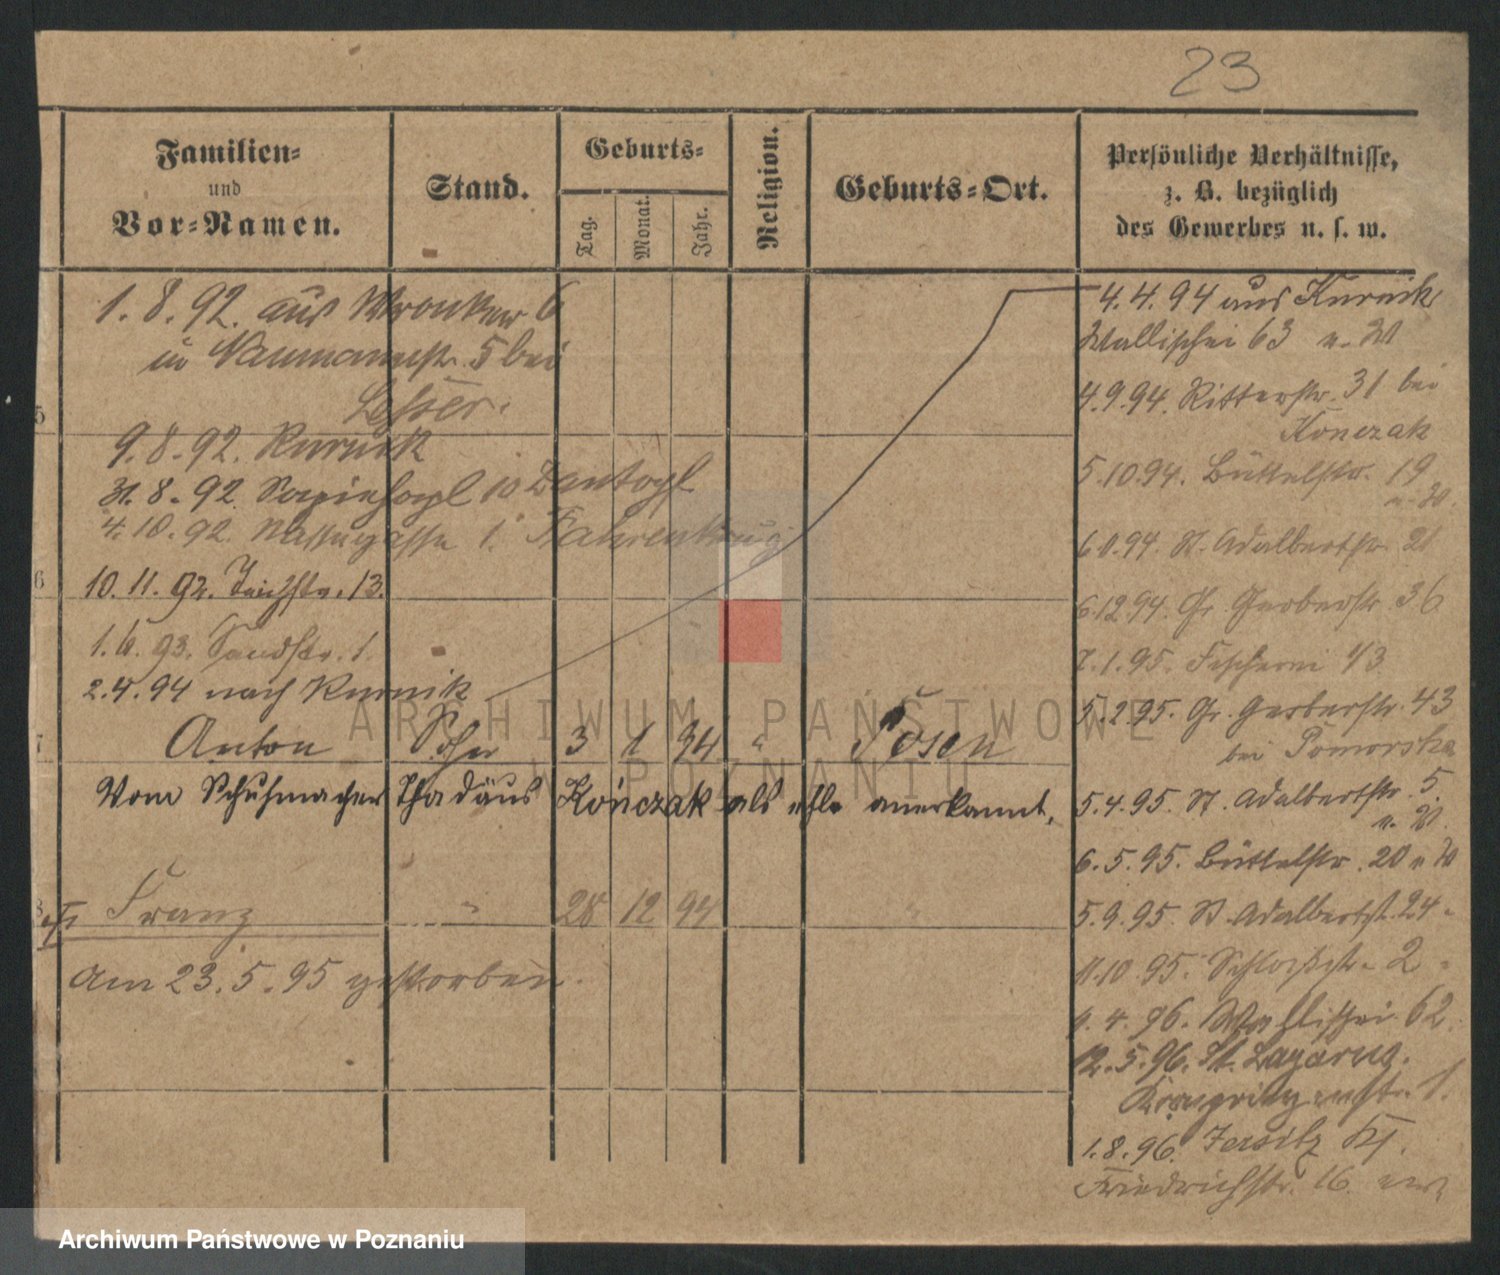 23
Familien=
und
Vor=Namen.
Stand.
Geburts=
Tag.
Monat.
Jahr.
Religion.
Geburts=Ort.
Persönliche Verhältnisse,
z. B. bezüglich
des Gewerbes u. s. w.
1. 8. 92. aus Wronker 6
in Naumannstr. 5 bei
Lesser.
5
9. 8. 92. Kurnik
31. 8. 92. Sapiehapl 10
4. 10. 92. Nassegasse 1. Fahrenkrug
6
10. 11. 92. Teichstr. 13.
93. Sandstr. 1.
2. 4. 94 nach Kurnik
7
Anton Sohn 3 1 94 " Posen
Vom Schuhmacher Thadäus Kończak als anerkannt.
8
Franz " 28 12 94 "
am 23. 5. 95 gestorben.
4. 4. 94 aus Kurnik
Wallischei 63 u. W
4. 9. 94. Ritterstr. 31 bei
Konczak
5. 10. 94. Büttelstr. 19
u. W.
94. St. Adalbertstr. 21
6. 12. 94. Gr. Gerberstr. 36
7. 1. 95. Fischerei 43
5. 2. 95. Gr. Gerberstr. 43
bei Pomorska
5. 4. 95. St. Adalbertstr. 5.
u. W.
6. 5. 95. Büttelstr. 20 u W
5. 9. 95. St. Adalbertst. 24
11. 10. 95. Schloßstr. 2
4. 96. Wallischei 62
12. 5. 96. St. Lazarus.
1.
1. 8. 96. Jersitz
Friedrichstr. 16.
ARCHIWUM PAŃSTWOWE
W POZNANIU
Archiwum Państwowe w Poznaniu